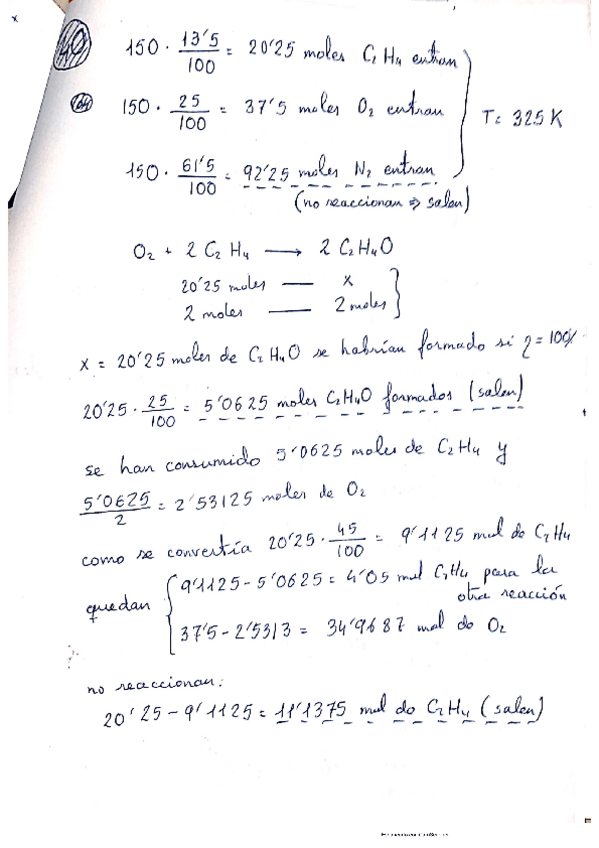 x
40
150 · 13'5/100 = 20'25 moles C2H4 entran
150 · 25/100 = 37'5 moles O2 entran
T = 325 K
150 · 61'5/100 = 92'25 moles N2 entran
(no reaccionan ⇒ salen)
O2 + 2 C2H4 ⟶ 2 C2H4O
20'25 moles — x
2 moles — 2 moles
x = 20'25 moles de C2H4O se habrían formado si η = 100%
20'25 · 25/100 = 5'0625 moles C2H4O formados (salen)
se han consumido 5'0625 moles de C2H4 y
5'0625/2 = 2'53125 moles de O2
como se convertía 20'25 · 45/100 = 9'1125 mol de C2H4
quedan
9'1125 - 5'0625 = 4'05 mol C2H4 para la
otra reacción
37'5 - 2'5313 = 34'9687 mol de O2
?
no reaccionan:
20'25 - 9'1125 = 11'1375 mol de C2H4 (salen)